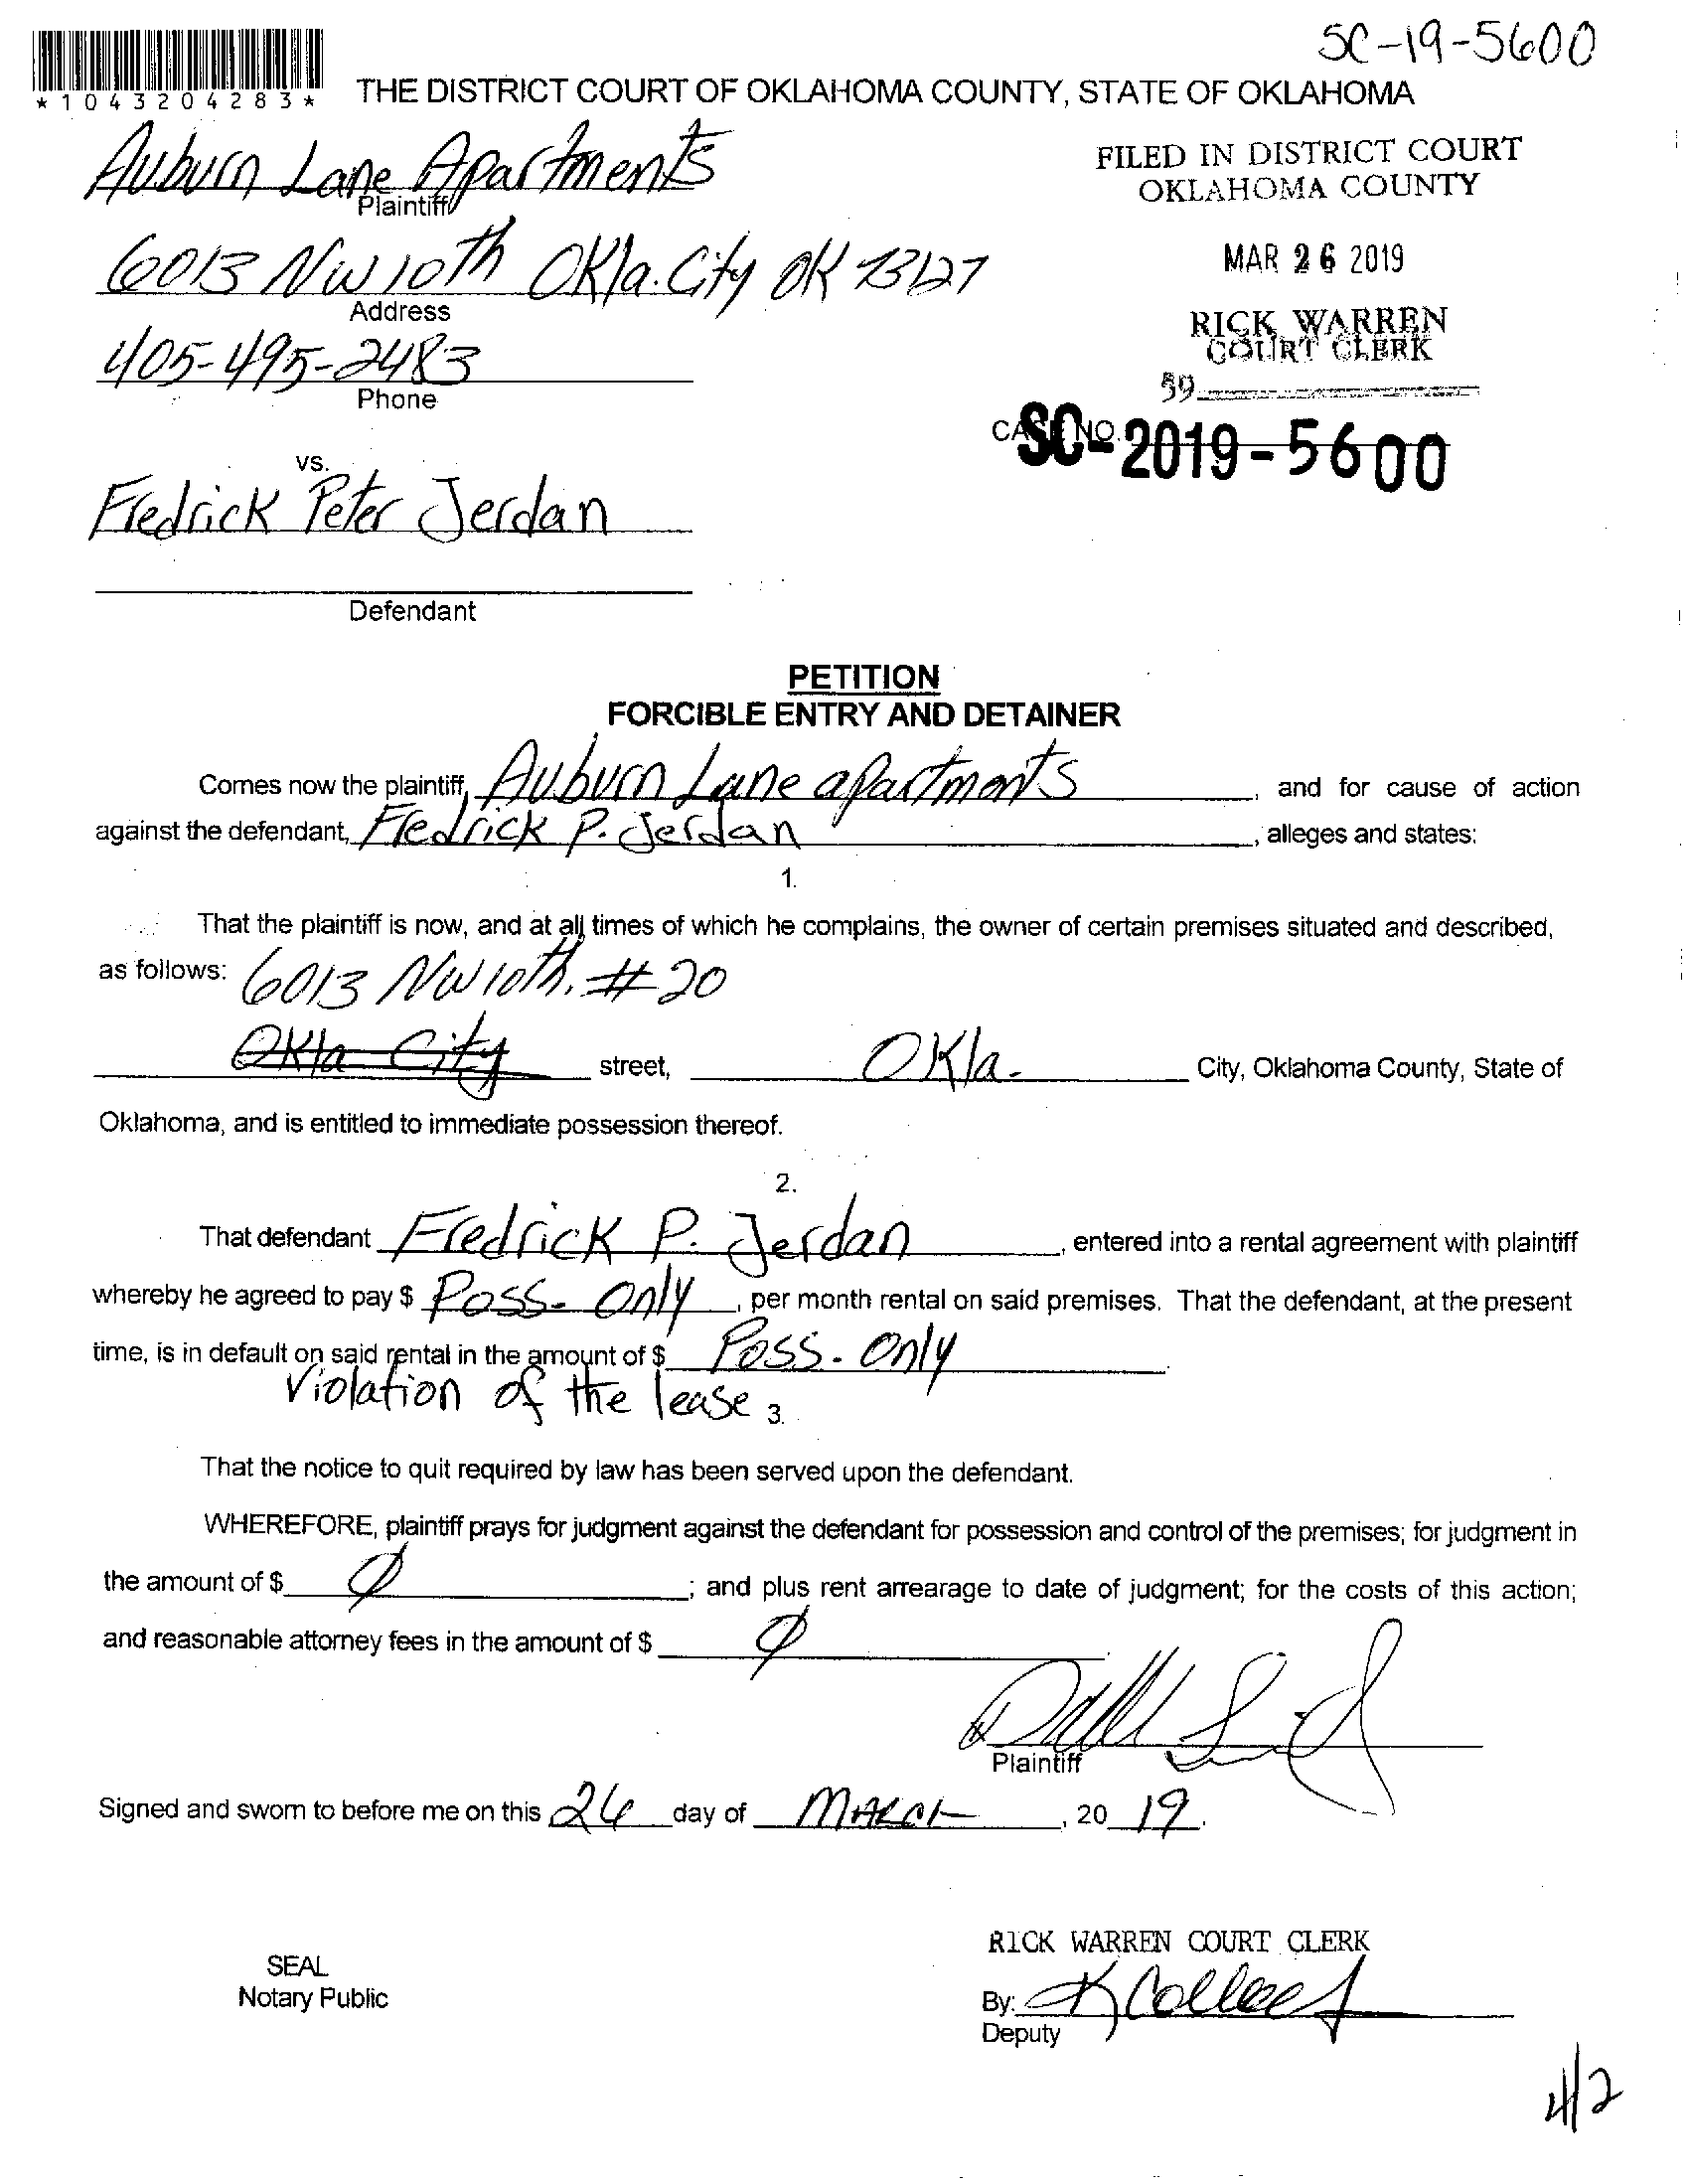 SC-19-5600
*1043204283*
THE DISTRICT COURT OF OKLAHOMA COUNTY, STATE OF OKLAHOMA
Auburn Lane Apartments
Plaintiff
6013 NW 10th Okla. City OK 73127
Address
405-495-2483
Phone
FILED IN DISTRICT COURT
OKLAHOMA COUNTY
MAR 26 2019
RICK WARREN
COURT CLERK
39
CASE NO. SC-2019-5600
vs.
Fredrick Peter Jerdan
Defendant
PETITION
FORCIBLE ENTRY AND DETAINER
Comes now the plaintiff, Auburn Lane apartments, and for cause of action
against the defendant, Fredrick P. Jerdan, alleges and states:
1.
That the plaintiff is now, and at all times of which he complains, the owner of certain premises situated and described,
as follows: 6013 NW 10th. # 20
Okla City street, Okla. City, Oklahoma County, State of
Oklahoma, and is entitled to immediate possession thereof.
2.
That defendant Fredrick P. Jerdan, entered into a rental agreement with plaintiff
whereby he agreed to pay $ Poss. Only, per month rental on said premises. That the defendant, at the present
time, is in default on said rental in the amount of $ Poss. Only.
Violation of the lease
3.
That the notice to quit required by law has been served upon the defendant.
WHEREFORE, plaintiff prays for judgment against the defendant for possession and control of the premises; for judgment in
the amount of $ Ø; and plus rent arrearage to date of judgment; for the costs of this action;
and reasonable attorney fees in the amount of $ Ø
Plaintiff
Signed and sworn to before me on this 26 day of March, 20 19.
RICK WARREN COURT CLERK
SEAL
Notary Public
By:
Deputy
4/2